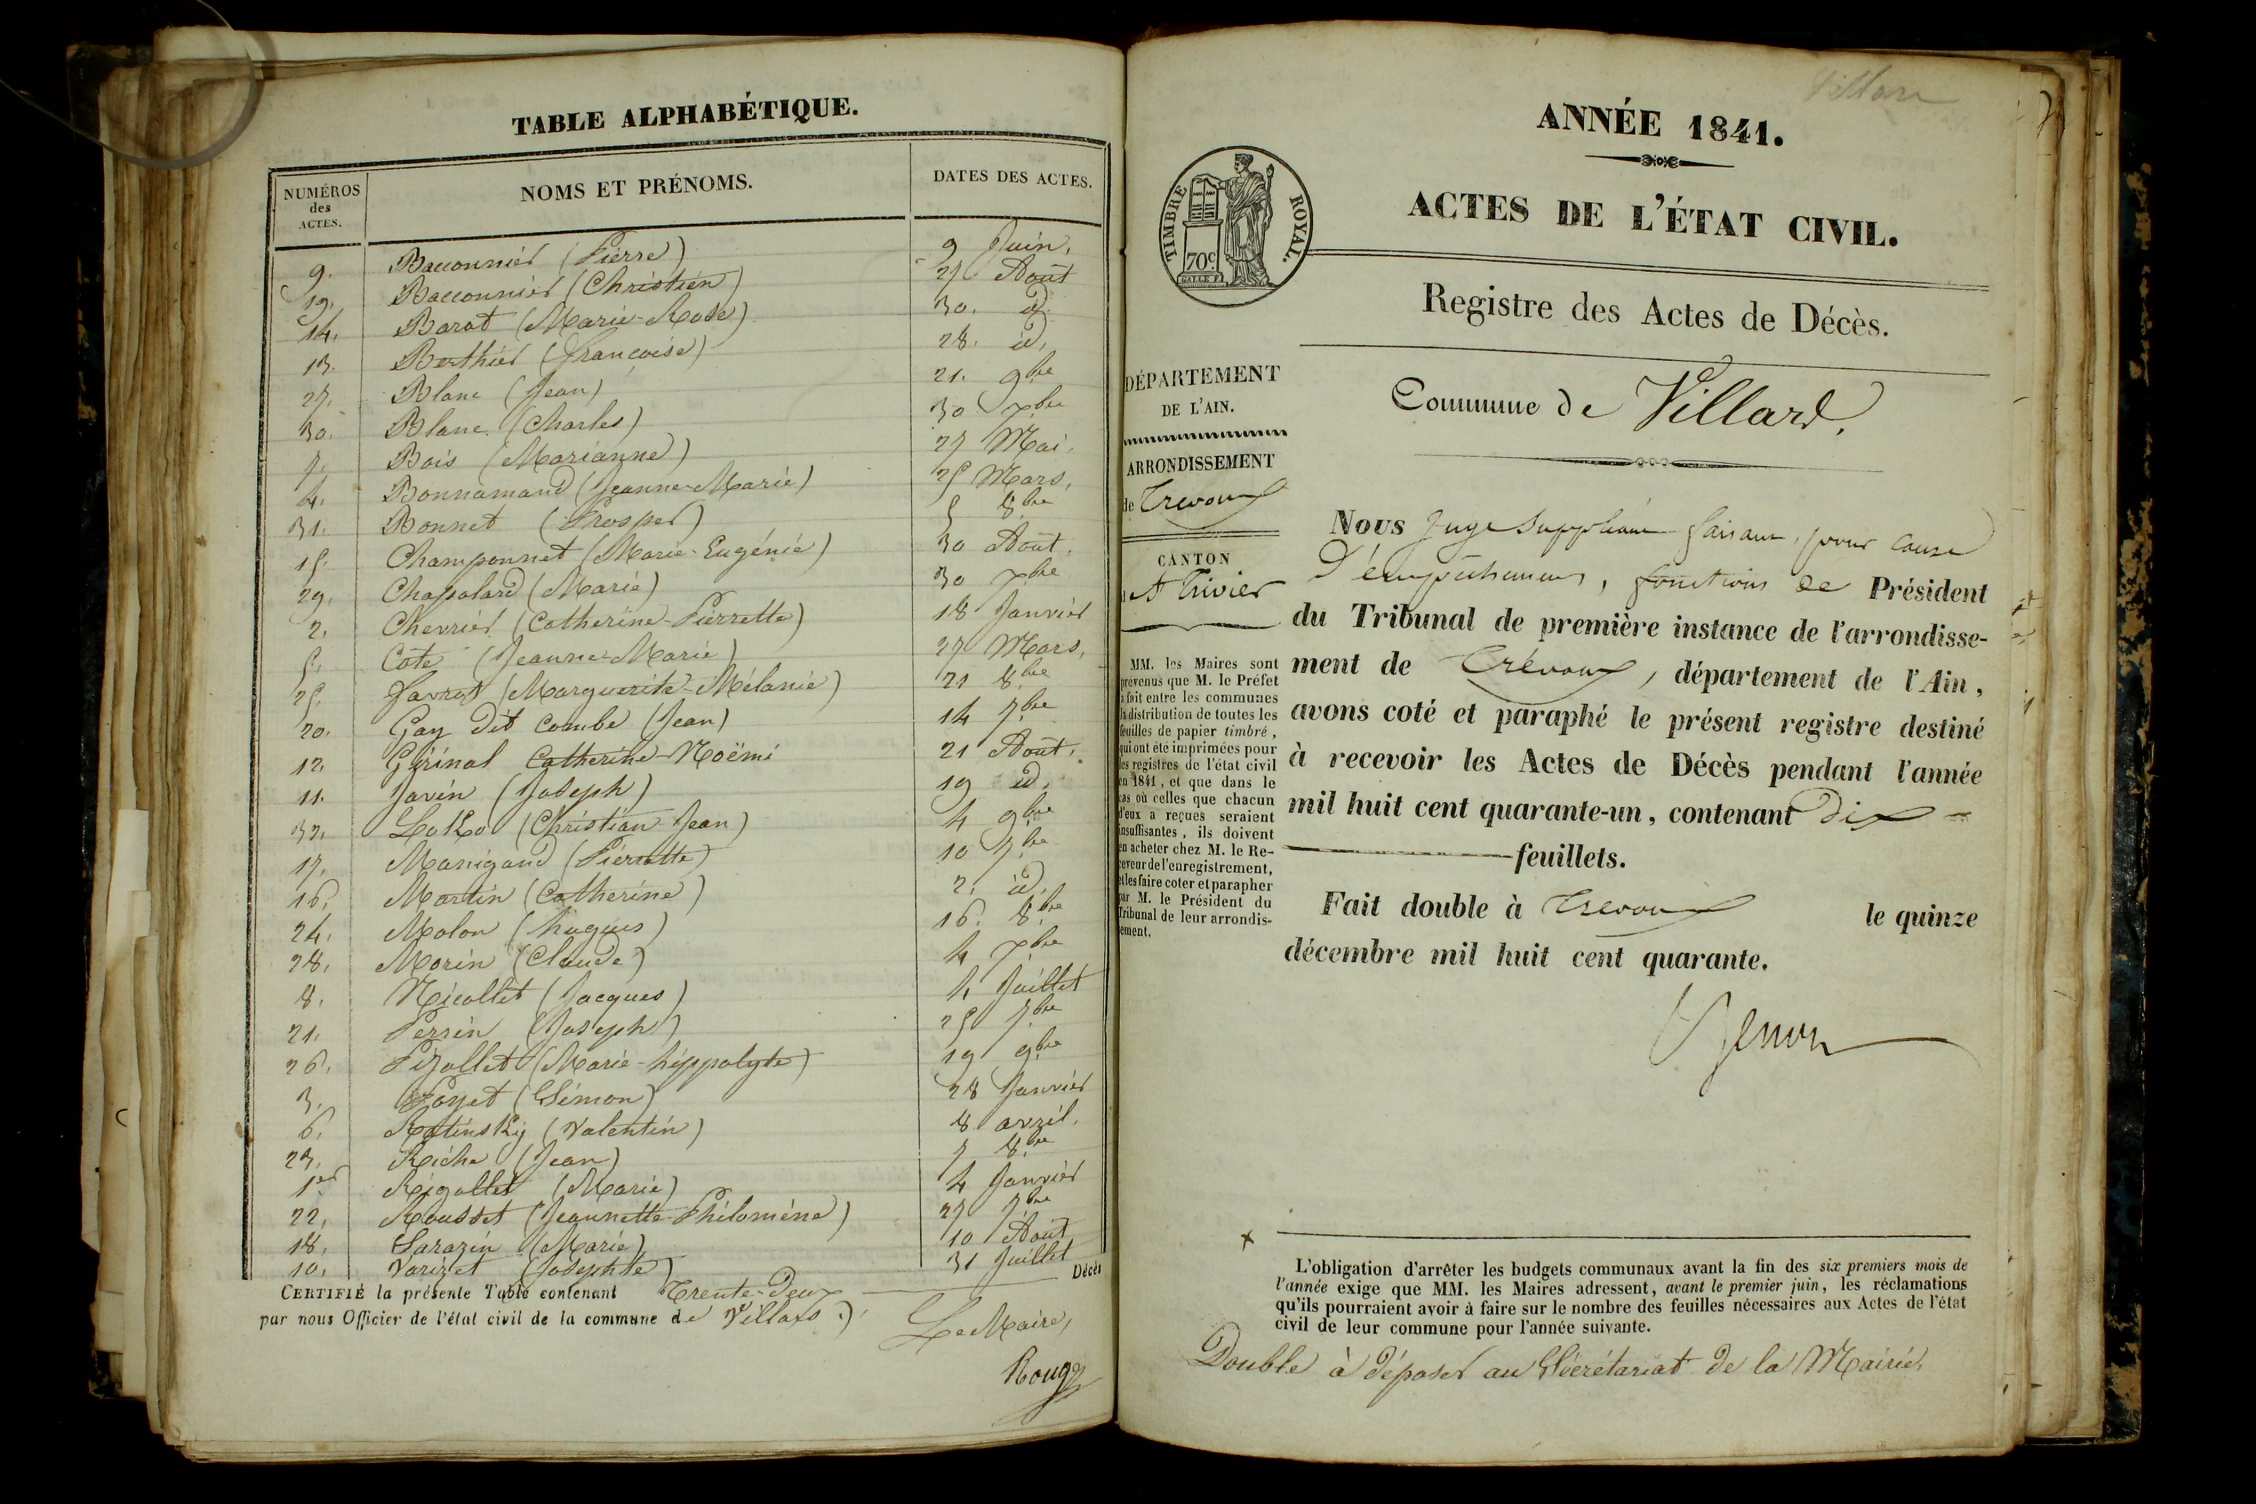 TABLE ALPHABÉTIQUE.
NUMÉROS des ACTES. NOMS ET PRÉNOMS. DATES DES ACTES.
9. Bacconnier (Pierre) 9 Juin.
19. Bacconnier (Christien) 27 Août
14. Barat (Marie-Rose) 30. id.
13. Berthier (françoise) 28. id.
27. Blanc (Jean) 21. 9bre
30. Blanc (Charles) 30 Xbre
7. Bois (Marianne) 27 Mai.
4. Bonnamand (Jeanne-Marie) 25 Mars.
31. Bonnet (Prosper) 5 8bre
15. Champonnet (Marie-Eugénie) 30 Août.
29. Chapolard (Marie) 30 Xbre
2. Chevrier (Catherine-Pierrette) 18 Janvier
5. Cote (Jeanne-Marie) 27 Mars.
25. Favrot (Marguerite-Mélanie) 21 8bre
20. Gay dit Combe (Jean) 14 7bre
12. Girinal Catherine-Noëmi 21 Août.
11. Javin (Joseph) 19 id.
32. LoKo (Christian-Jean) 4 9bre
17. Manigand (Pierrette) 10 7bre
16. Martin (Catherine) 2. id.
24. Molon (hugues) 16. 8bre
28. Morin (Claude) 4 Xbre
8. Nicollet (Jacques) 4 Juillet
21. Perrin (Joseph) 25 7bre
26. Pizollet (Marie-hippolyte) 19 9bre
3. Poyet (Simon) 28 Janvier
6. RatinsKy (Valentin) 8 avril.
23. Riche (Jean) 7 8bre
1er Rigollet (Marie) 4 Janvier
22. Rousset (Jeannette-Philomène) 27 7bre
18. Sarazin (Marie) 10 Août
10. Varizet (Josephte) 31 Juillet
CERTIFIÉ la présente Table contenant Trente-Deux Décès
par nous Officier de l'état civil de la commune de Villars.
Le Maire,
Roug
Villars
ANNÉE 1841.
TIMBRE ROYAL.
70c
ACTES DE L'ÉTAT CIVIL.
Registre des Actes de Décès.
DÉPARTEMENT
DE L'AIN.
ARRONDISSEMENT
de Trevoux
CANTON
St Trivier
MM. les Maires sont
prévenus que M. le Préfet
a fait entre les communes
la distribution de toutes les
feuilles de papier timbré,
qui ont été imprimées pour
les registres de l'état civil
en 1841, et que dans le
cas où celles que chacun
d'eux a reçues seraient
insuffisantes, ils doivent
en acheter chez M. le Re-
ceveur de l'enregistrement,
et les faire coter et parapher
par M. le Président du
Tribunal de leur arrondis-
sement.
Commune de Villard.
Nous Juge Suppléant faisant, pour cause
d'empêchement, fonctions de Président
du Tribunal de première instance de l'arrondisse-
ment de Trévoux, département de l'Ain,
avons coté et paraphé le présent registre destiné
à recevoir les Actes de Décès pendant l'année
mil huit cent quarante-un, contenant Dix
feuillets.
Fait double à Trevoux le quinze
décembre mil huit cent quarante.
L'obligation d'arrêter les budgets communaux avant la fin des six premiers mois de
l'année exige que MM. les Maires adressent, avant le premier juin, les réclamations
qu'ils pourraient avoir à faire sur le nombre des feuilles nécessaires aux Actes de l'état
civil de leur commune pour l'année suivante.
Double à déposer au Sécrétariat de la Mairie.